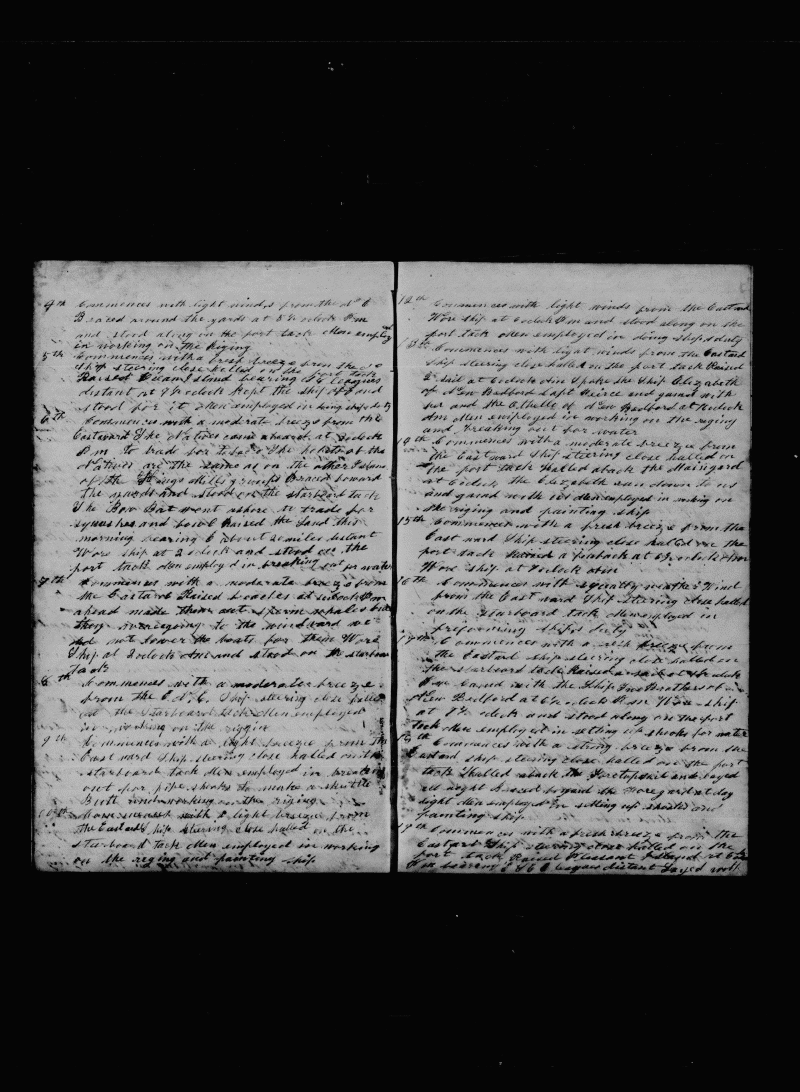 4th Commences with light winds from the N E
Braced around the yards at 5½ oclock P m
and stood along on the port tack Men employ
ed
in working on the riging
5th Commences with a fresh breeze from the
Ship steering close halled on the port tack
Raised Ocean Island bearing leagues
distant at oclock Kept the ship off and
stood for it Men employed in doing ships duty
6th Commences with a moderate breeze from the
Eastward The Natives came aboard at 3 oclock
P m to trade for The habits of the
Natives are the same as on the other Islans
of the Kings mills groups Braced forward
the yards and stood on the starboard tack
The Bow Boat went ashore to trade for
and fowl Raised the Land this
morning bearing E about 20 miles distant
Wore ship at 2 oclock and stood on the
port tack Men employed in breaking out for water
7th Commences with a moderate breeze from
the Eastard Raised beaches at oclock P m
ahead made them out sperm whales but
they were going to the windward we
did not lower the boats for them Wore
Ship at 3 oclock Am and stood on the starboard
tack
8th Commences with a moderate breeze
from the E. N. E. Ship steering close halled
on the Starboard tack Men employed
in working on the riggin
9th Commences with a light breeze from the
East ward Ship steering close halled on the
starboard tack Men employed in breaking
out for pipe shooks to make
Broth and working on the riging
10th Commences with a light breeze from
the Eastard Ship steering close halled on the
starboard tack Men employed in working
on the riging and painting ship
12th Commences with light winds from the Eastard
Wore ship at 6 oclock P m and stood along on the
port tack Men employed in doing ships duty
13th Commences with light winds from the Eastard
Ship steering close halled on the port tack Raised
a sail at 6 oclock Am Spoke the Ship Elizabeth
of New Badford Capt Peirce and gamed with
her and the Othello of New Badford at oclock
Am Men employed in working on the riging
and breaking out for water
14th Commences with a moderate breeze from
the East ward ship steering close halled on
the port tack Halled aback the Mainyard
at 6 oclock the Elizabeth ran down to us
and gamed with us Men employed in working on
the riging and painting ship
15th Commences with a fresh breeze from the
East ward Ship steering close halled on the
port tack Raised a finback at 6½ oclock Am
Wore ship at oclock Am
16th Commences with squally weather Wind
from the East ward Ship steering close halled
on the starboard tack Men employed in
preforming ships duty
17th Commences with a breeze from
the Eastard ship steering close halled on
the starboard tack Raised a sail at 4 oclock
P m Gamed with the Ship Two Brothers of
New Bedford at 6½ oclock P m Wore ship
at 9½ oclock and stood along on the port
tack Men employed in setting up shooks for water
18th Commences with a strong breeze from the
Eastard ship steering close halled on the port
tack Halled aback the Foretopsail and layed
all night Braced forward the Foreyard at day
light Men employed in setting up shooks and
painting ship
19th Commences with a fresh breeze from the
Eastard Ship steering close halled on the
port tack Raised Pleasant Island at 6½
bearing leagues distant Layed